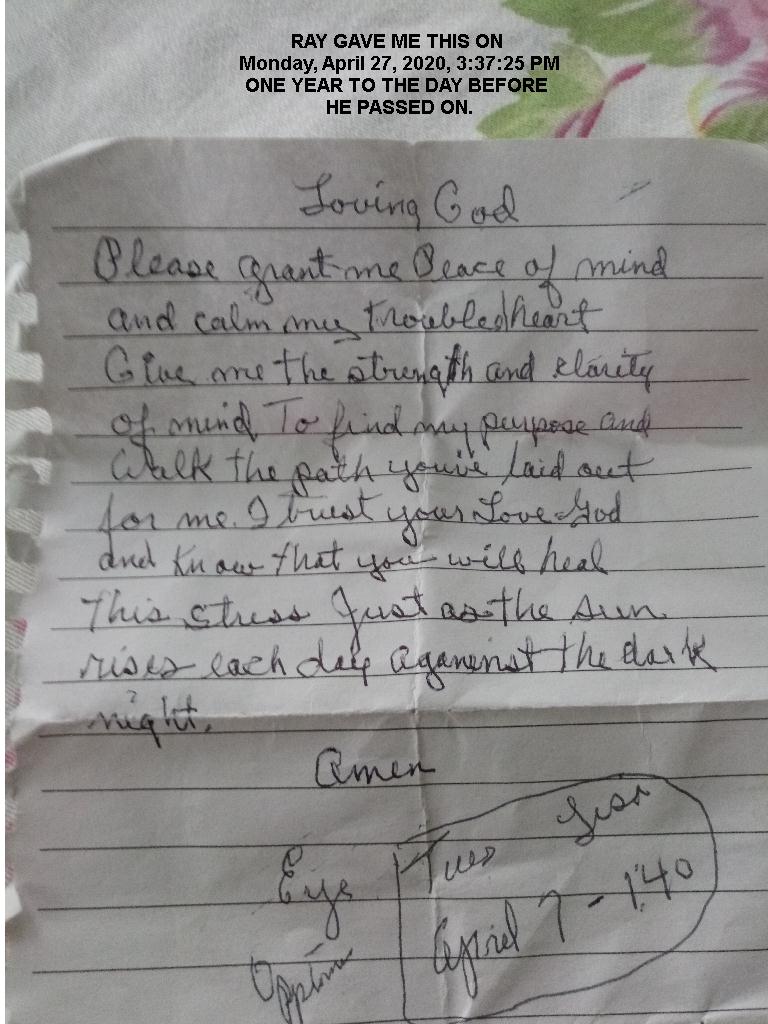 RAY GAVE ME THIS ON
Monday, April 27, 2020, 3:37:25 PM
ONE YEAR TO THE DAY BEFORE
HE PASSED ON.
Loving God
Please grant me Peace of mind
and calm my troubled heart
Give me the strength and clarity
of mind To find my purpose and
Walk the path you've laid out
for me. I trust your Love God
and Know that you will heal
This stress Just as the sun
rises each day aganinst the dark
night.
Amen
Tues
Eye
April 7 - 1:40